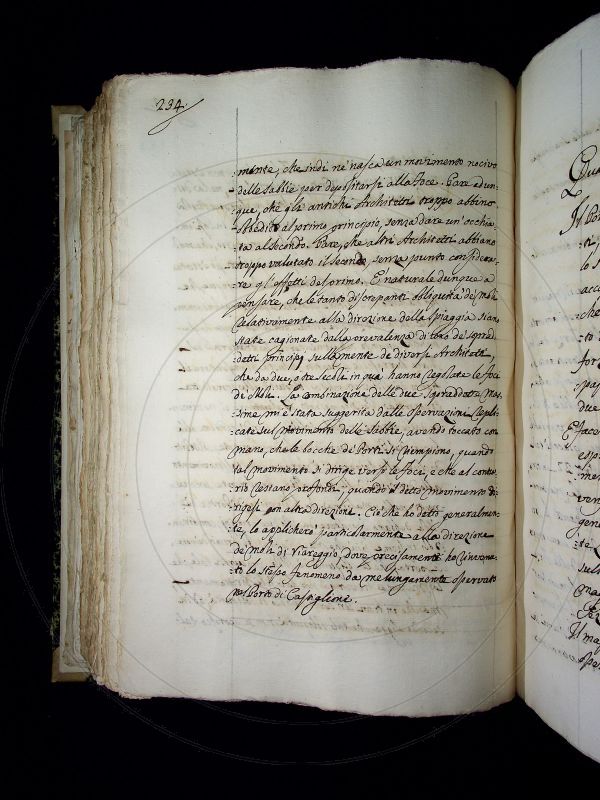 234.
:mente, che indi ne nasca un movimento nocivo
delle sabbie per depositarsi alla foce. Pare adun
:que, che gli antichi Architetti troppo abbino
:badito al primo principio, senza dare un'occhia
:ta al secondo. Pare, che altri Architetti abbiano
troppo valutato il secondo, senza punto considera
:re gl'effetti del primo. E' naturale dunque a
pensare, che le tanto discrepanti obliquità de' moli
relativamente alla direzione della spiaggia sian
state cagionate dalla prevalenza di uno de' sopra
:detti principj sulla mente de' diversi Architetti,
che da due, o tre secoli in quà hanno regolate le foci
di Moli. La combinazione delle due sopraddette mas
:sime mi è stata suggerita dalle osservazioni repli
:cate sul movimento delle sabbie, avendo toccato con
mano, che le bocche de' Porti si riempiono, quando
tal movimento si dirige verso le foci, e che al contra
:rio restano profondi, quando il detto movimento di
:rigesi con altra direzione. Ciò che ho detto generalmen
:te, lo applicherò particolarmente alla direzione
de' moli di Viareggio, dove precisamente ho rinvenu
:to lo stesso fenomeno da me lungamente osservato
nel Porto di Castiglione.
Il Por
:ti,
lo s
acc
che
to
for
pas
due
E face
espo
:me
ven
gen
:te
sul
qua
Il mag